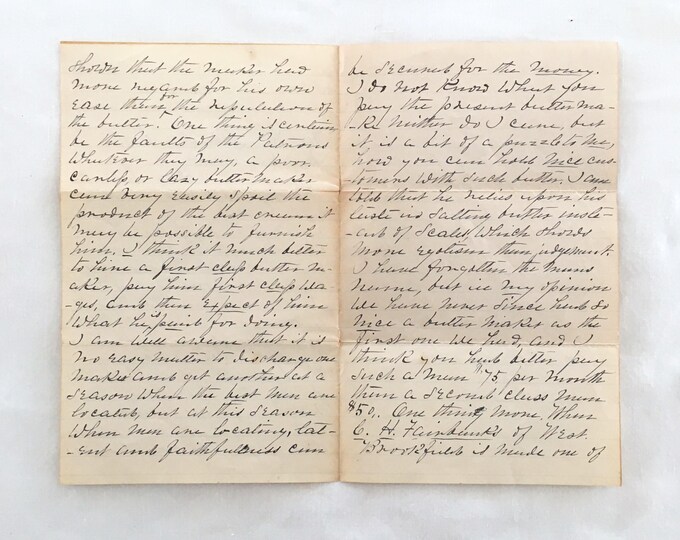 Shown that the maker had
more regard for his own
ease than for the reputation of
the butter. One thing is certain
be the faults of the Patrons
whatever they may, a poor
careless or lazy butter maker
can very easily spoil the
product of the best cream it
may be possible to furnish
him. I think it much better
to hire a first class butter ma-
-ker, pay him first class wa-
-ges, and then Expect of him
what he is paid for doing.
I am well aware that it is
no easy matter to discharge one
maker and get another at a
season when the best men are
located, but at this season
when men are locating, tal-
-ent and faithfulness can
be secured for the money.
I do not know what you
pay the present butter ma-
-ker neither do I care, but
it is a bit of a puzzle to me,
how you can hold nice cus-
-tomers with such butter. I am
told that he relies upon his
taste in salting butter inste-
-ad of scales which shows
more egotism than judgement.
I have forgotten the mans
name, but in my opinion
we have never since had so
nice a butter maker as the
first one we had, and I
think you had better pay
such a man $75 per month
than a second class man
$50. One thing more. When
C. H. Fairbanks of West
Brookfield is made one of